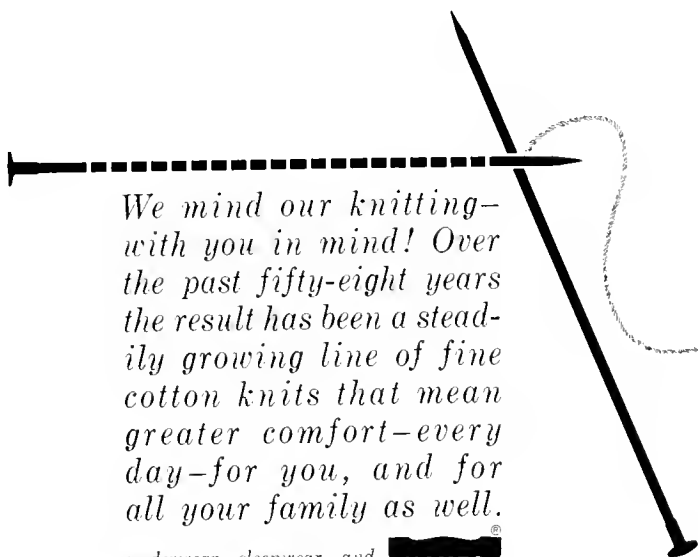 We mind our knitting–
with you in mind! Over
the past fifty-eight years
the result has been a stead-
ily growing line of fine
cotton knits that mean
greater comfort–every
day–for you, and for
all your family as well.
®
sleepwear and